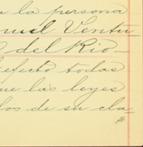 a la persona
nuel Ventu
del Rio
efecto todas
ue las leyes
los de su cla-